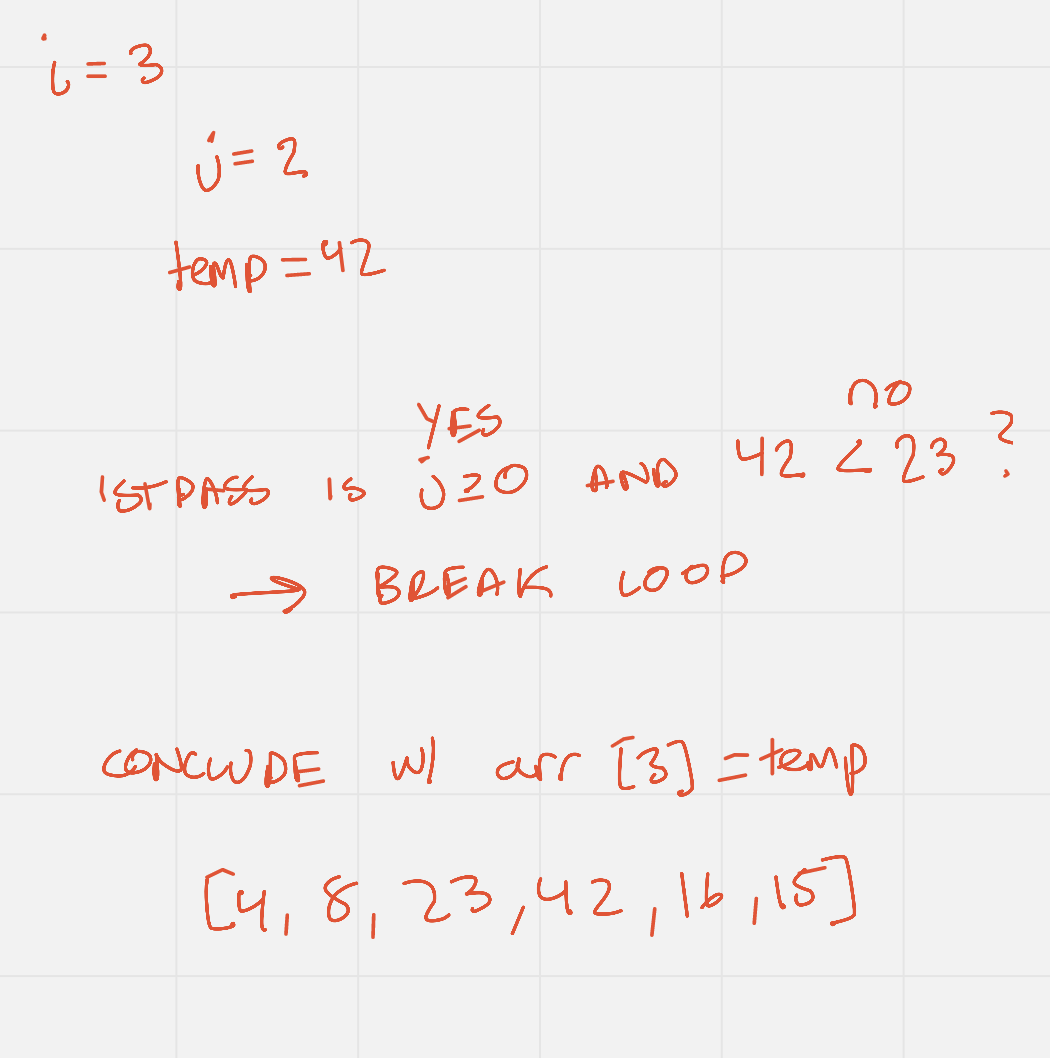 i = 3
j = 2
temp = 42
YES
no
1ST PASS IS j ≥ 0 AND 42 < 23 ?
→ BREAK LOOP
CONCLUDE W/ arr [3] = temp
[4, 8, 23, 42, 16, 15]